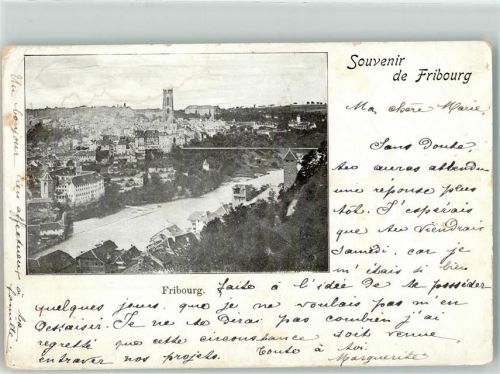 Souvenir
de Fribourg
Ma chère Marie,
Sans Doute,
tu auras attendu
une réponse plus
tôt. J'espérais
que tu viendrais
Samedi, car je
m'étais si bien
Fribourg.
faite à l'idée de te posséder
quelques jours, que je ne voulais pas m'en
Dessaisir. Je ne te Dirai pas combien j'ai
regretté que cette circonstance soit venue
entraver nos projets. Toute à toi
Marguerite
Un bonjour bien affectueux à ta
famille